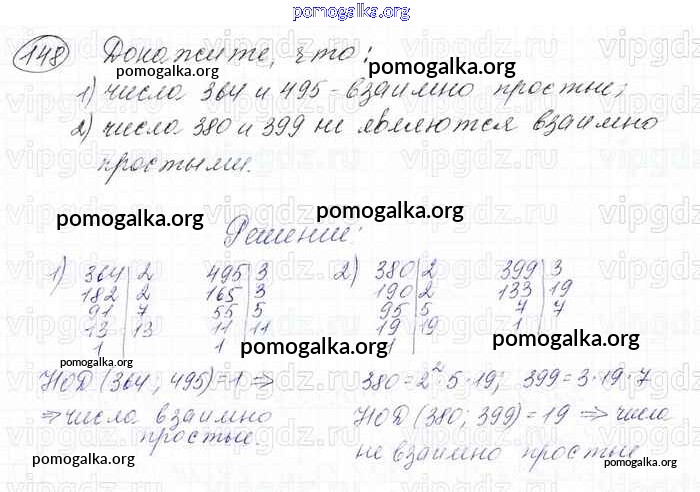 pomogalka.org
148 Докажите, что:
pomogalka.org
1) числа 364 и 495 - взаимно простые;
2) числа 380 и 399 не являются взаимно
простыми.
pomogalka.org
pomogalka.org
Решение:
1) 364 | 2 495 | 3 2) 380 | 2 399 | 3
182 | 2 165 | 3 190 | 2 133 | 19
91 | 7 55 | 5 95 | 5 7 | 7
13 | 13 11 | 11 19 | 19 1
1 1 1
pomogalka.org
pomogalka.org
pomogalka.org
НОД (364; 495) = 1 ⇒ 380 = 2² · 5 · 19; 399 = 3 · 19 · 7
⇒ числа взаимно НОД (380; 399) = 19 ⇒ числа
простые. не взаимно простые
pomogalka.org
pomogalka.org
pomogalka.org